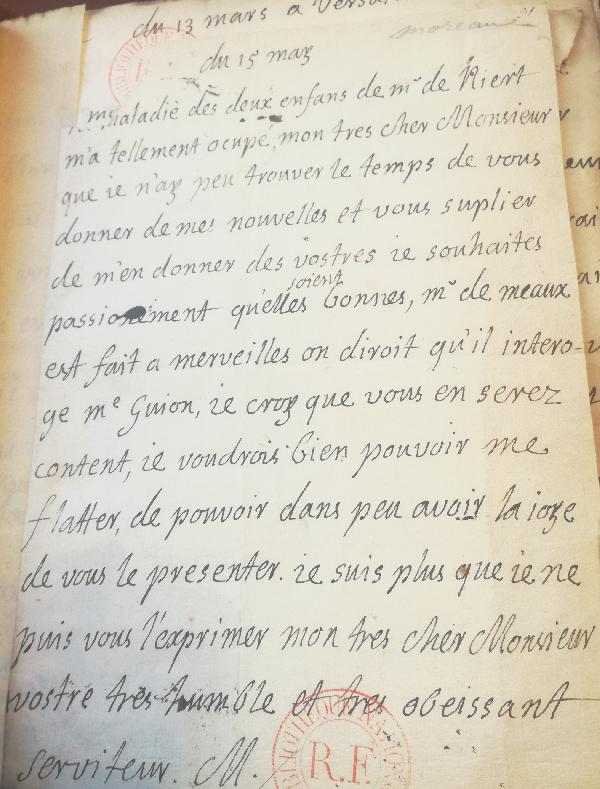 du 13 mars a Versai
moreau
du 15 mars
maladie des deux enfans de mr de Niert
m'a tellement ocupé, mon tres cher Monsieur
que ie n'ay peu trouver le temps de vous
donner de mes nouvelles et vous suplier
de m'en donner des vostres ie souhaites
passionément qu'elles soient bonnes, mr de meaux
est fait a merveilles on diroit qu'il intero-
ge me Guion, ie croy que vous en serez
content, ie voudrois bien pouvoir me
flatter, de pouvoir dans peu avoir la ioye
de vous le presenter. ie suis plus que ie ne
puis vous l'exprimer mon tres cher Monsieur
vostre tres humble et tres obeissant
serviteur. M.
BIBLIOTHEQUE
R.F.